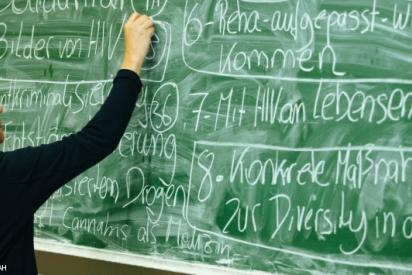 Bilder im HIV
kriminalisie
36
erung
basierten Drogen
Cannabis als Medizin
6- Reha-aufgepasst-W
Kommen
7-Mit HIV am Lebensen
8. Konkrete Maßnah
zur Diversity in d
AH